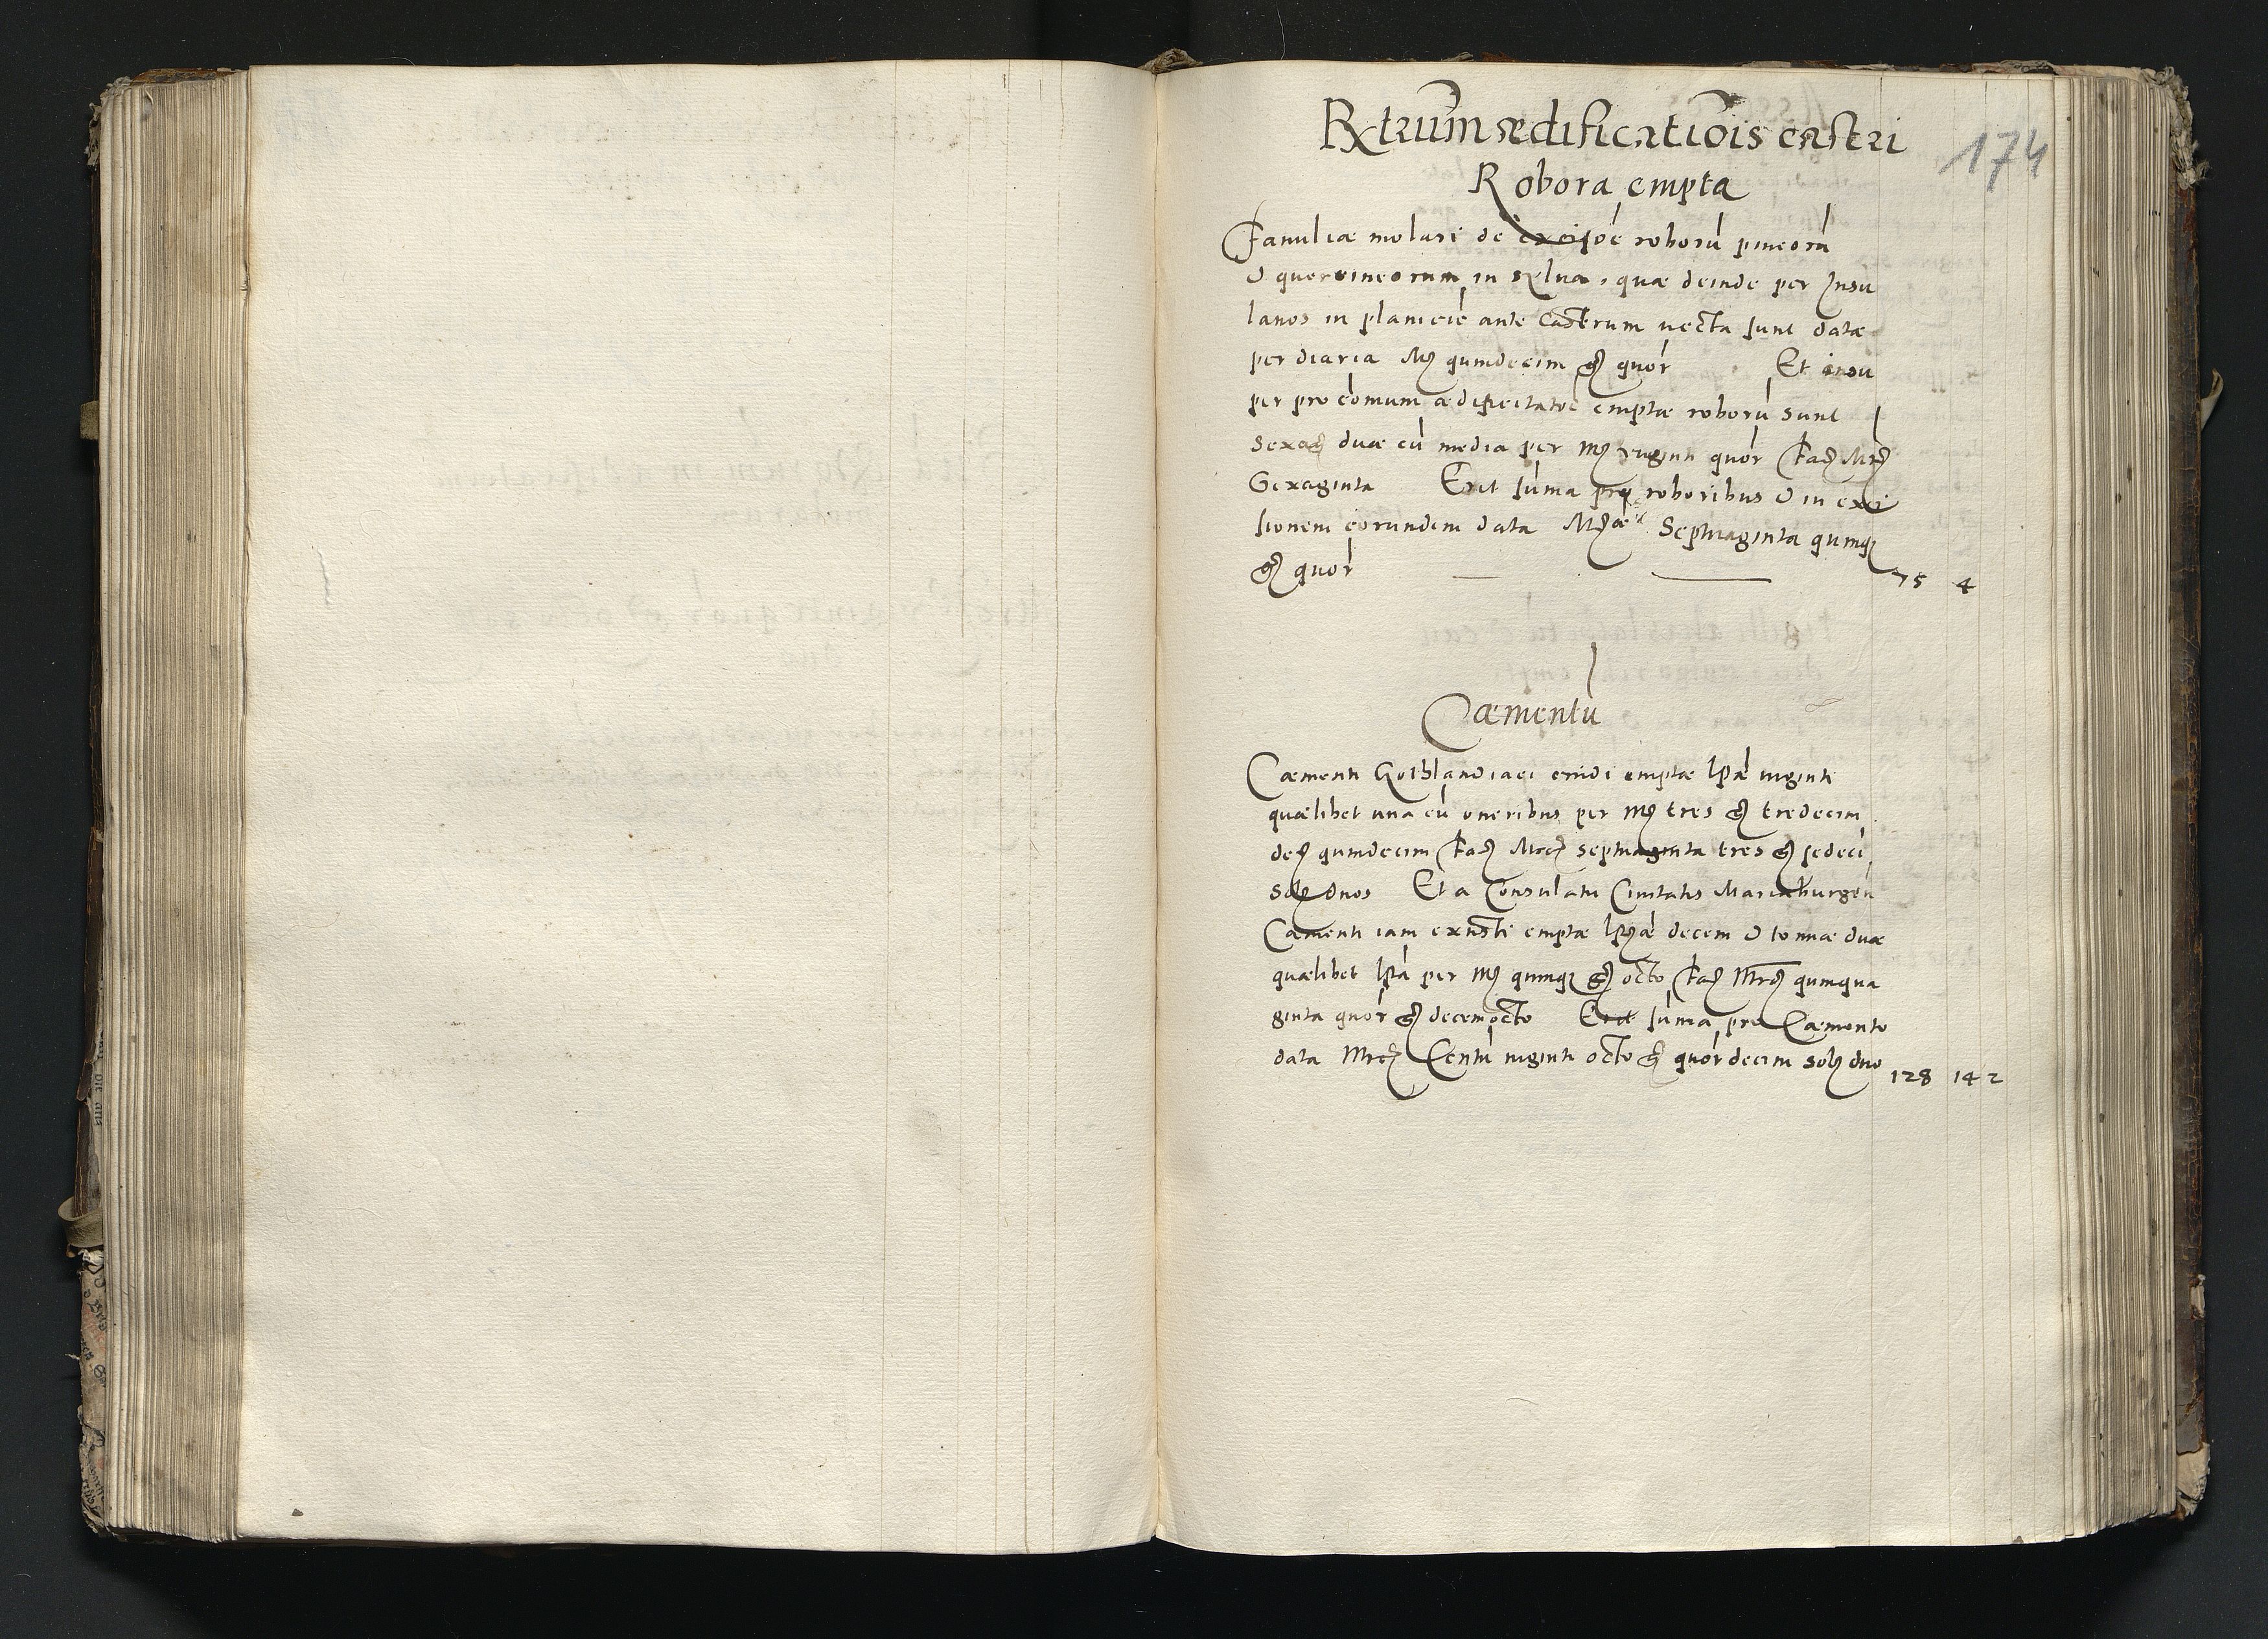 Rxtrum ædificatiois castri
174
Robora empta
Familiæ molari de excisioe roborū pineorū
& quercineorum in sylua, quæ deinde per Insu
lanos in planicie ante Castrum uecta sunt datæ
per diaria Mr quindecim gr quor Et insu
per pro comuni ædificitatoe emptæ roborū sunt
sexag duæ cū media per mr viginti quor facr Mrcr
Sexaginta Erit sūma pro roboribus & in exci
sionem eorundem data Mrcæ Septuaginta quinqz
gr quor 75 4
Cæmentū
Cæmenti Gothlandiaci crudi emptæ lstæ uiginti
quælibet una cū oneribus per mr tres gr tredecim
den quindecim facr Mrcr septuaginta tres gr sedeci
sol duos Et a Consulatu Ciuitatis Mariæburgen
Cæmenti iam exusti emptæ lstæ decem & tonnæ duæ
quælibet lsta per mr quinqz gr octo facr Mrcr quinqua
ginta quor gr decemocto Erit sūma pro Cæmento
data Mrcr Centū uiginti octo gr quordecim sol duo 128 14 2